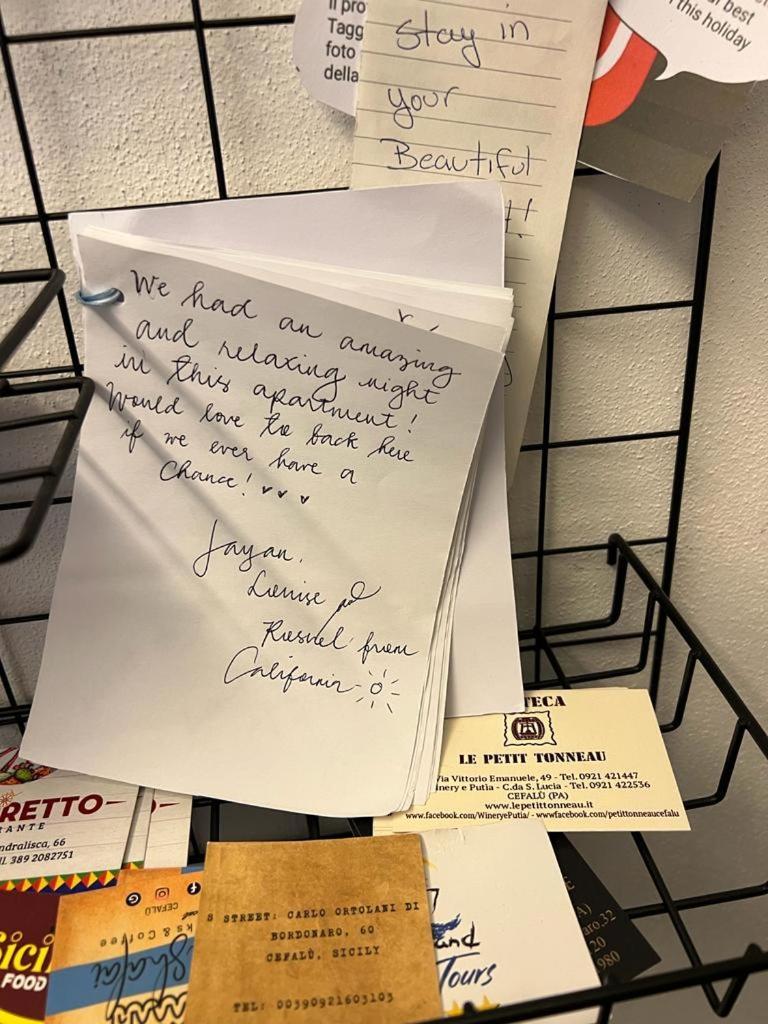 Il pro
Tagg
foto
della
stay in
your
Beautiful
best
this holiday
We had an amazing
and relaxing night
in this apartment!
Would love to back here
if we ever have a
Chance!
Jayan,
Louise
from
California
TECA
LE PETIT TONNEAU
Via Vittorio Emanuele, 49 - Tel. 0921 421447
inery e Putìa - C.da S. Lucia - Tel. 0921 422536
CEFALÙ (PA)
www.lepetittonneau.it
www.facebook.com/WineryePutia/ - wwwfacebook.com/petittonneaucefalu
RETTO
RANTE
ndralisca, 66
ll. 389 2082751
Sici
FOOD
CEFALÙ
ks & Coffee
S STREET: CARLO ORTOLANI DI
BORDONARO, 60
CEFALÙ, SICILY
TEL: 00390921603103
and
Tours
A)
aro.32
20
980